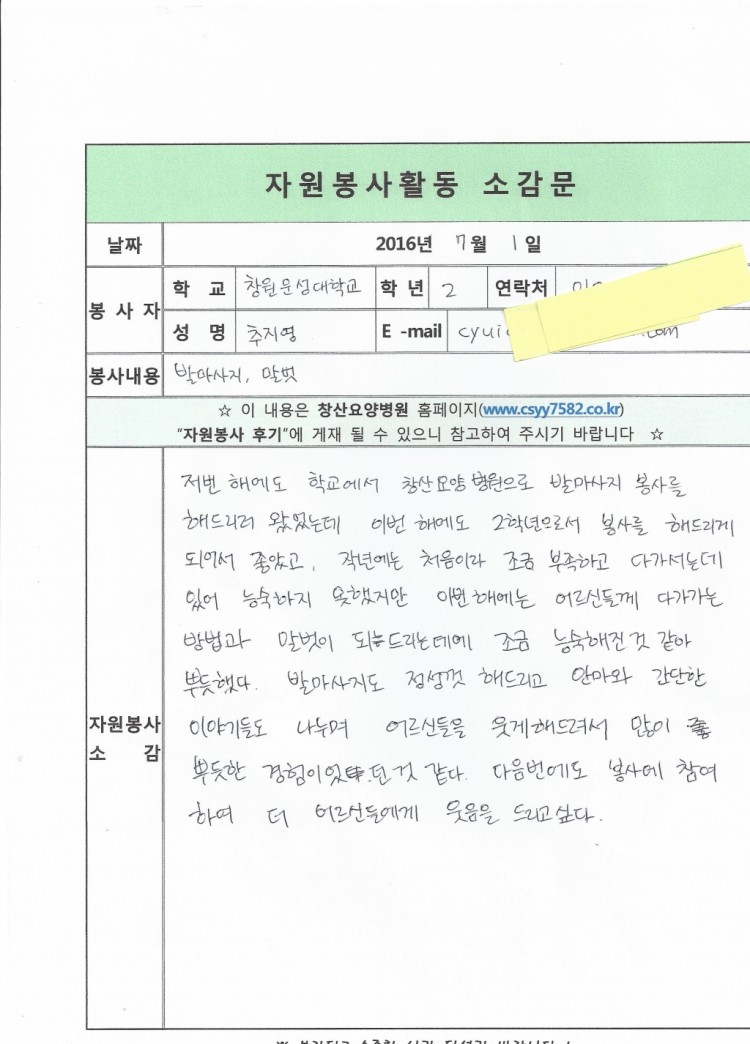 자원봉사활동 소감문
날짜 2016년 7월 1일
봉사자 학교 창원문성대학교 학년 2 연락처 010
성명 추지영 E-mail cyui com
봉사내용 발마사지, 말벗
☆ 이 내용은 창산요양병원 홈페이지(www.csyy7582.co.kr)
"자원봉사 후기"에 게재 될 수 있으니 참고하여 주시기 바랍니다 ☆
자원봉사 소감
저번 해에도 학교에서 창산요양병원으로 발마사지 봉사를
해드리러 왔었는데 이번 해에도 2학년으로서 봉사를 해드리게
되어서 좋았고, 작년에는 처음이라 조금 부족하고 다가서는데
있어 능숙하지 못했지만 이번해에는 어르신들께 다가가는
방법과 말벗이 되드리는데에 조금 능숙해진것 같아
뿌듯했다. 발마사지도 정성껏 해드리고 안마와 간단한
이야기들도 나누며 어르신들을 웃게해드려서 많이
뿌듯한 경험이었던것 같다. 다음번에도 봉사에 참여
하여 더 어르신들에게 웃음을 드리고싶다.